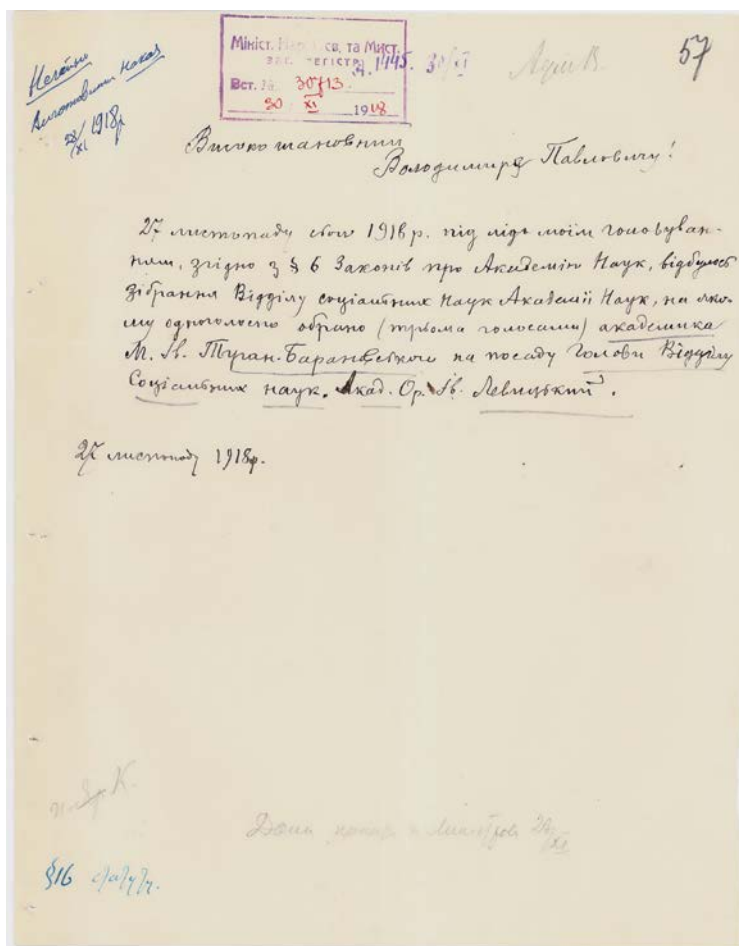 57
Негайно
виготовити наказ
29/XI 1918р
Мініст. Нар. Осв. та Мист.
заг. регістр.
Вст. № 30713.
30 XI 1918
Високошановний
Володимире Павловичу!
27 листопаду сього 1918 р. під моїм головуван-
ням, згідно з § 6 Законів про Академію Наук, відбулось
зібрання Відділу соціальних Наук Академії Наук, на яко-
му одноголосно обрано (трьома голосами) академика
М. Ів. Туган-Барановського на посаду Голови Відділу
Соціальних наук. Акад. Ор. Ів. Левицький.
27 листопаду 1918р.
§16